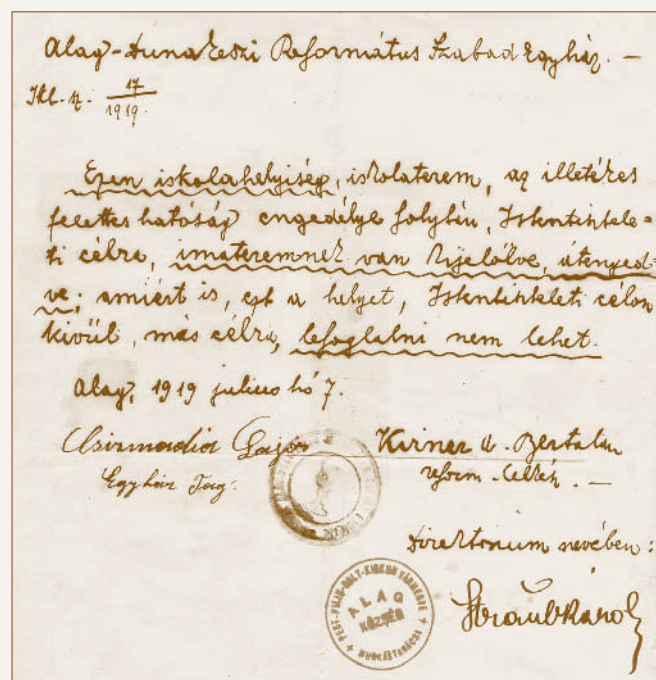 Alag-Dunakeszi Református Szabad Egyház. —
Ikt. sz. 17/1919.
Ezen iskolahelyiség, iskolaterem, az illetékes
felettes hatóság engedélye folytán, Istentisztele=
ti célra, imateremnek van kijelölve, átenged-
ve; amiért is, ezt a helyet, Istentiszteleti célon
kivül, más célra, lefoglalni nem lehet.
Alag, 1919 julius hó 7.
Csizmadia Lajos
Egyház Tag.
Kirner A. Bertalan
reform. lelkész. —
Direktorium nevében:
PEST-PILIS-SOLT-KISKUN VÁRMEGYE
ALAG
KÖZSÉG
MUNKÁSTANÁCSA
Straub Károly